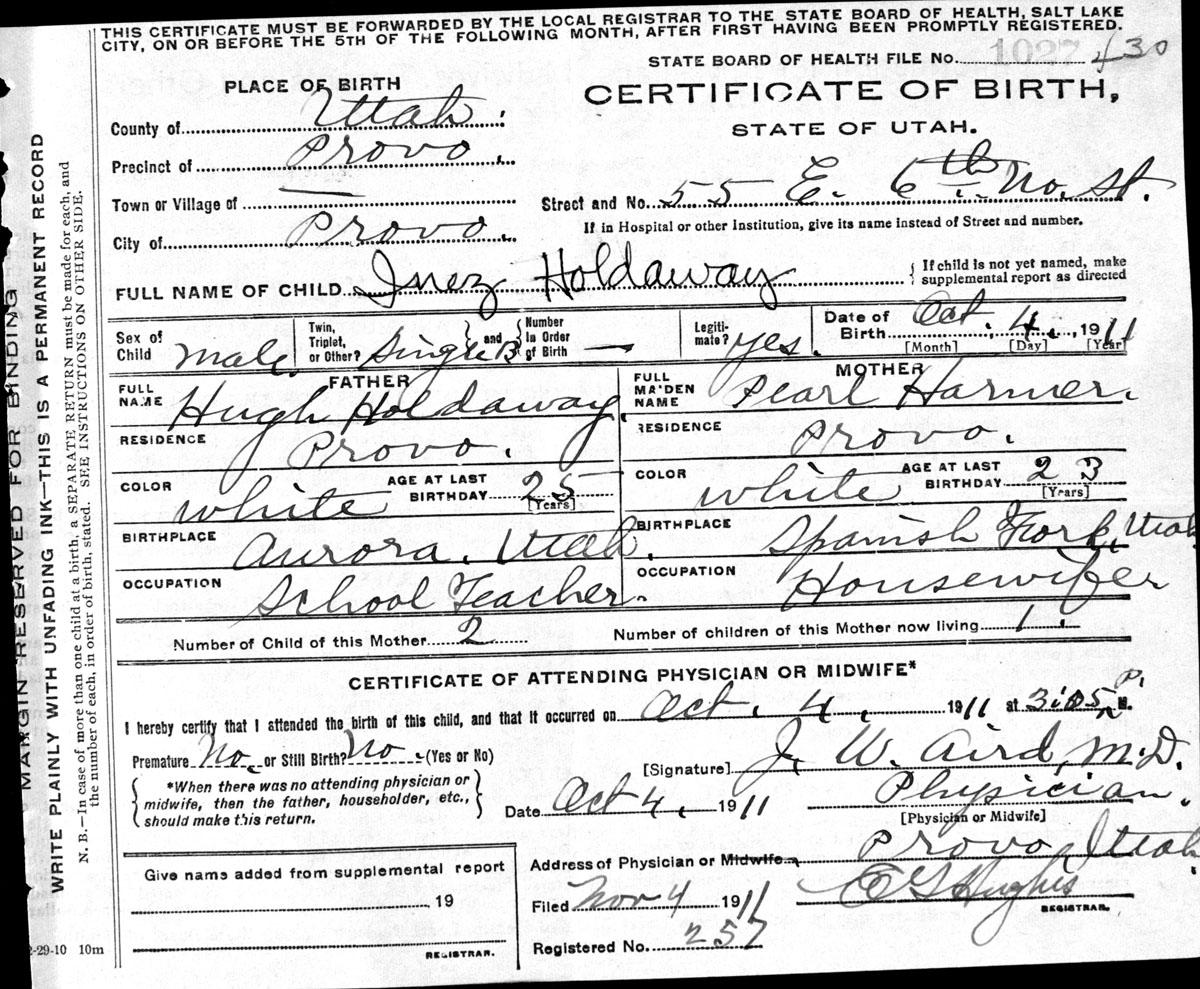 THIS CERTIFICATE MUST BE FORWARDED BY THE LOCAL REGISTRAR TO THE STATE BOARD OF HEALTH, SALT LAKE
CITY, ON OR BEFORE THE 5TH OF THE FOLLOWING MONTH, AFTER FIRST HAVING BEEN PROMPTLY REGISTERED.
STATE BOARD OF HEALTH FILE No. 1027 430
PLACE OF BIRTH
CERTIFICATE OF BIRTH,
STATE OF UTAH.
County of Utah
Precinct of Provo.
Town or Village of —
Street and No. 55 E. 6th No. St.
City of Provo.
If in Hospital or other Institution, give its name instead of Street and number.
FULL NAME OF CHILD Inez Holdaway { If child is not yet named, make supplemental report as directed
Sex of Child male. Twin, Triplet, or Other? Single } and { Number in Order of Birth — Legiti-mate? yes. Date of Birth Oct. 4., 1911
[Month] [Day] [Year]
FATHER
MOTHER
FULL NAME Hugh Holdaway
FULL MAIDEN NAME Pearl Harmer.
RESIDENCE Provo.
RESIDENCE Provo.
COLOR white AGE AT LAST BIRTHDAY 25 [Years]
COLOR white AGE AT LAST BIRTHDAY 23 [Years]
BIRTHPLACE Aurora, Utah.
BIRTHPLACE Spanish Fork, Utah
OCCUPATION School Teacher.
OCCUPATION Housewifer
Number of Child of this Mother 2
Number of children of this Mother now living 1.
CERTIFICATE OF ATTENDING PHYSICIAN OR MIDWIFE*
I hereby certify that I attended the birth of this child, and that it occurred on Oct. 4, 1911 at 3:05 P. M.
Premature No. or Still Birth? No. (Yes or No)
[Signature] J. W. Aird, M.D.
{ *When there was no attending physician or
midwife, then the father, householder, etc.,
should make this return. }
Date Oct 4, 1911
Physician.
[Physician or Midwife]
Give name added from supplemental report
19
REGISTRAR.
Address of Physician or Midwife Provo, Utah
Filed Nov 4 1911 Hughes
REGISTRAR.
Registered No. 257
MARGIN RESERVED FOR BINDING
WRITE PLAINLY WITH UNFADING INK—THIS IS A PERMANENT RECORD
N. B.—In case of more than one child at a birth, a SEPARATE RETURN must be made for each, and
the number of each, in order of birth, stated. SEE INSTRUCTIONS ON OTHER SIDE.
2-29-10 10m